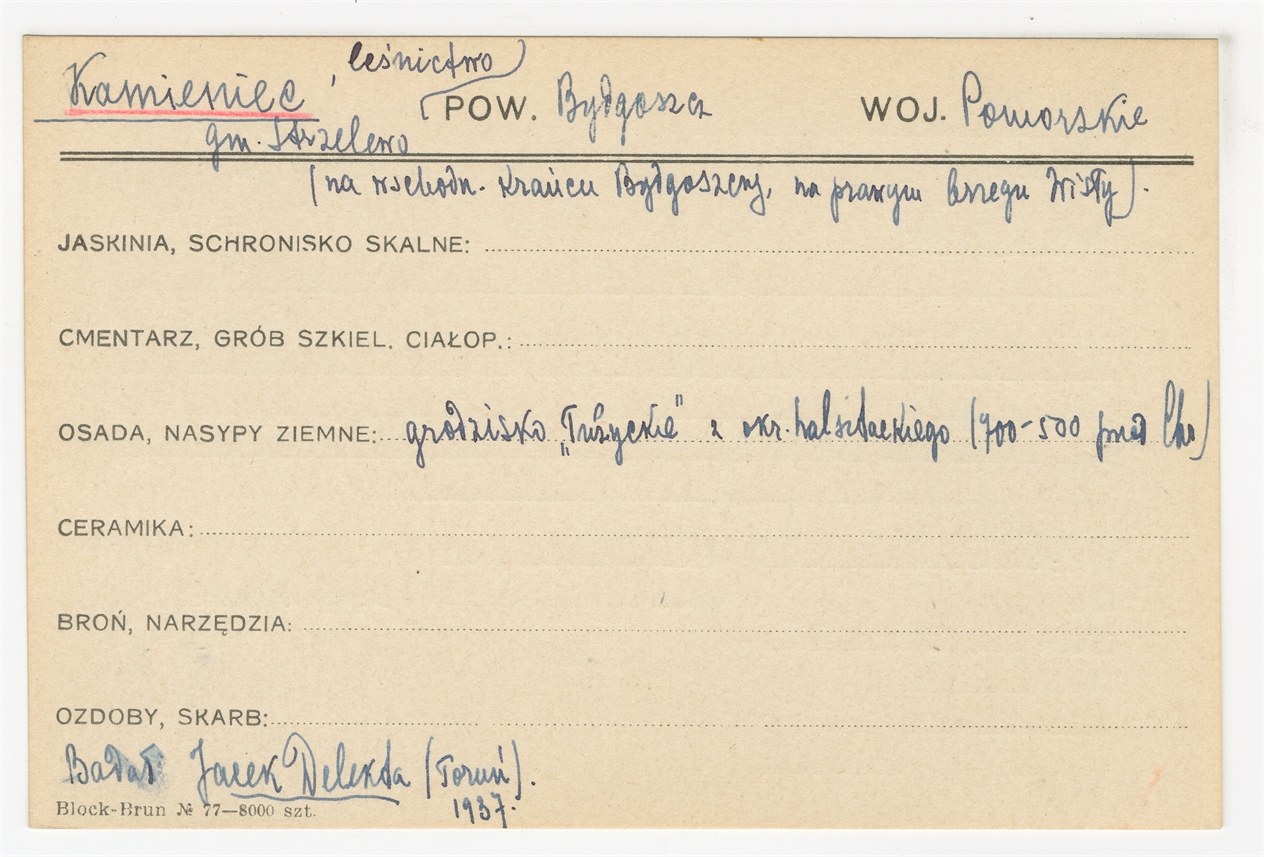 Kamieniec, leśnictwo POW. Bydgoszcz WOJ. Pomorskie
gm. Strzelewo
(na wschodn. krańcu Bydgoszczy, na prawym brzegu Wisły).
JASKINIA, SCHRONISKO SKALNE:
CMENTARZ, GRÓB SZKIEL. CIAŁOP.:
OSADA, NASYPY ZIEMNE: grodzisko „Łużyckie" z okr. halsztackiego (700-500 przed Chr)
CERAMIKA:
BROŃ, NARZĘDZIA:
OZDOBY, SKARB:
Badał Jacek Delekta (Toruń).
1937.
Block-Brun № 77—8000 szt.